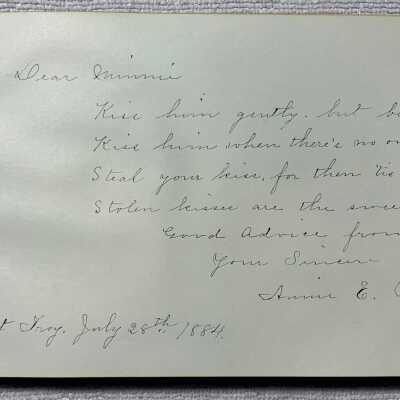 Dear Minnie
Kiss him gently, but
Kiss him when there's no
Steal your kiss, for then 'tis
Stolen kisses are the
Good Advice from
Your Sincere
Annie E.
Troy, July 28th, 1884.